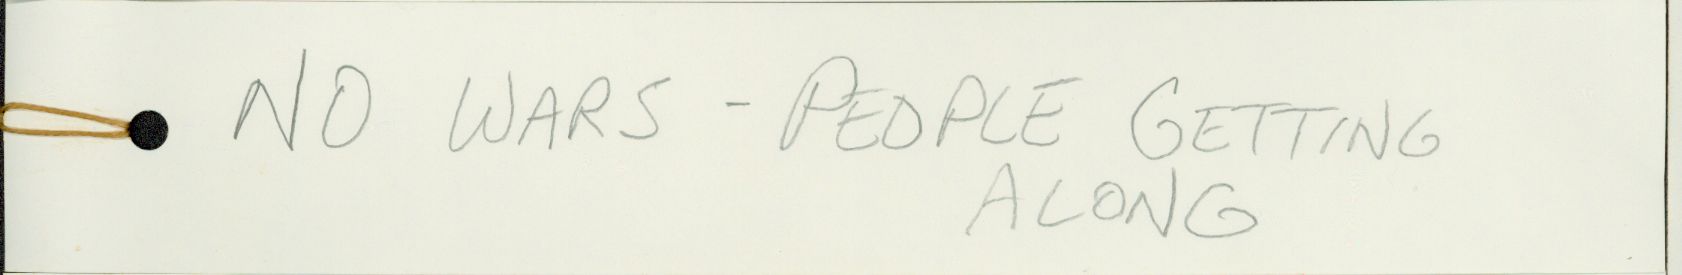 NO WARS - PEOPLE GETTING
ALONG